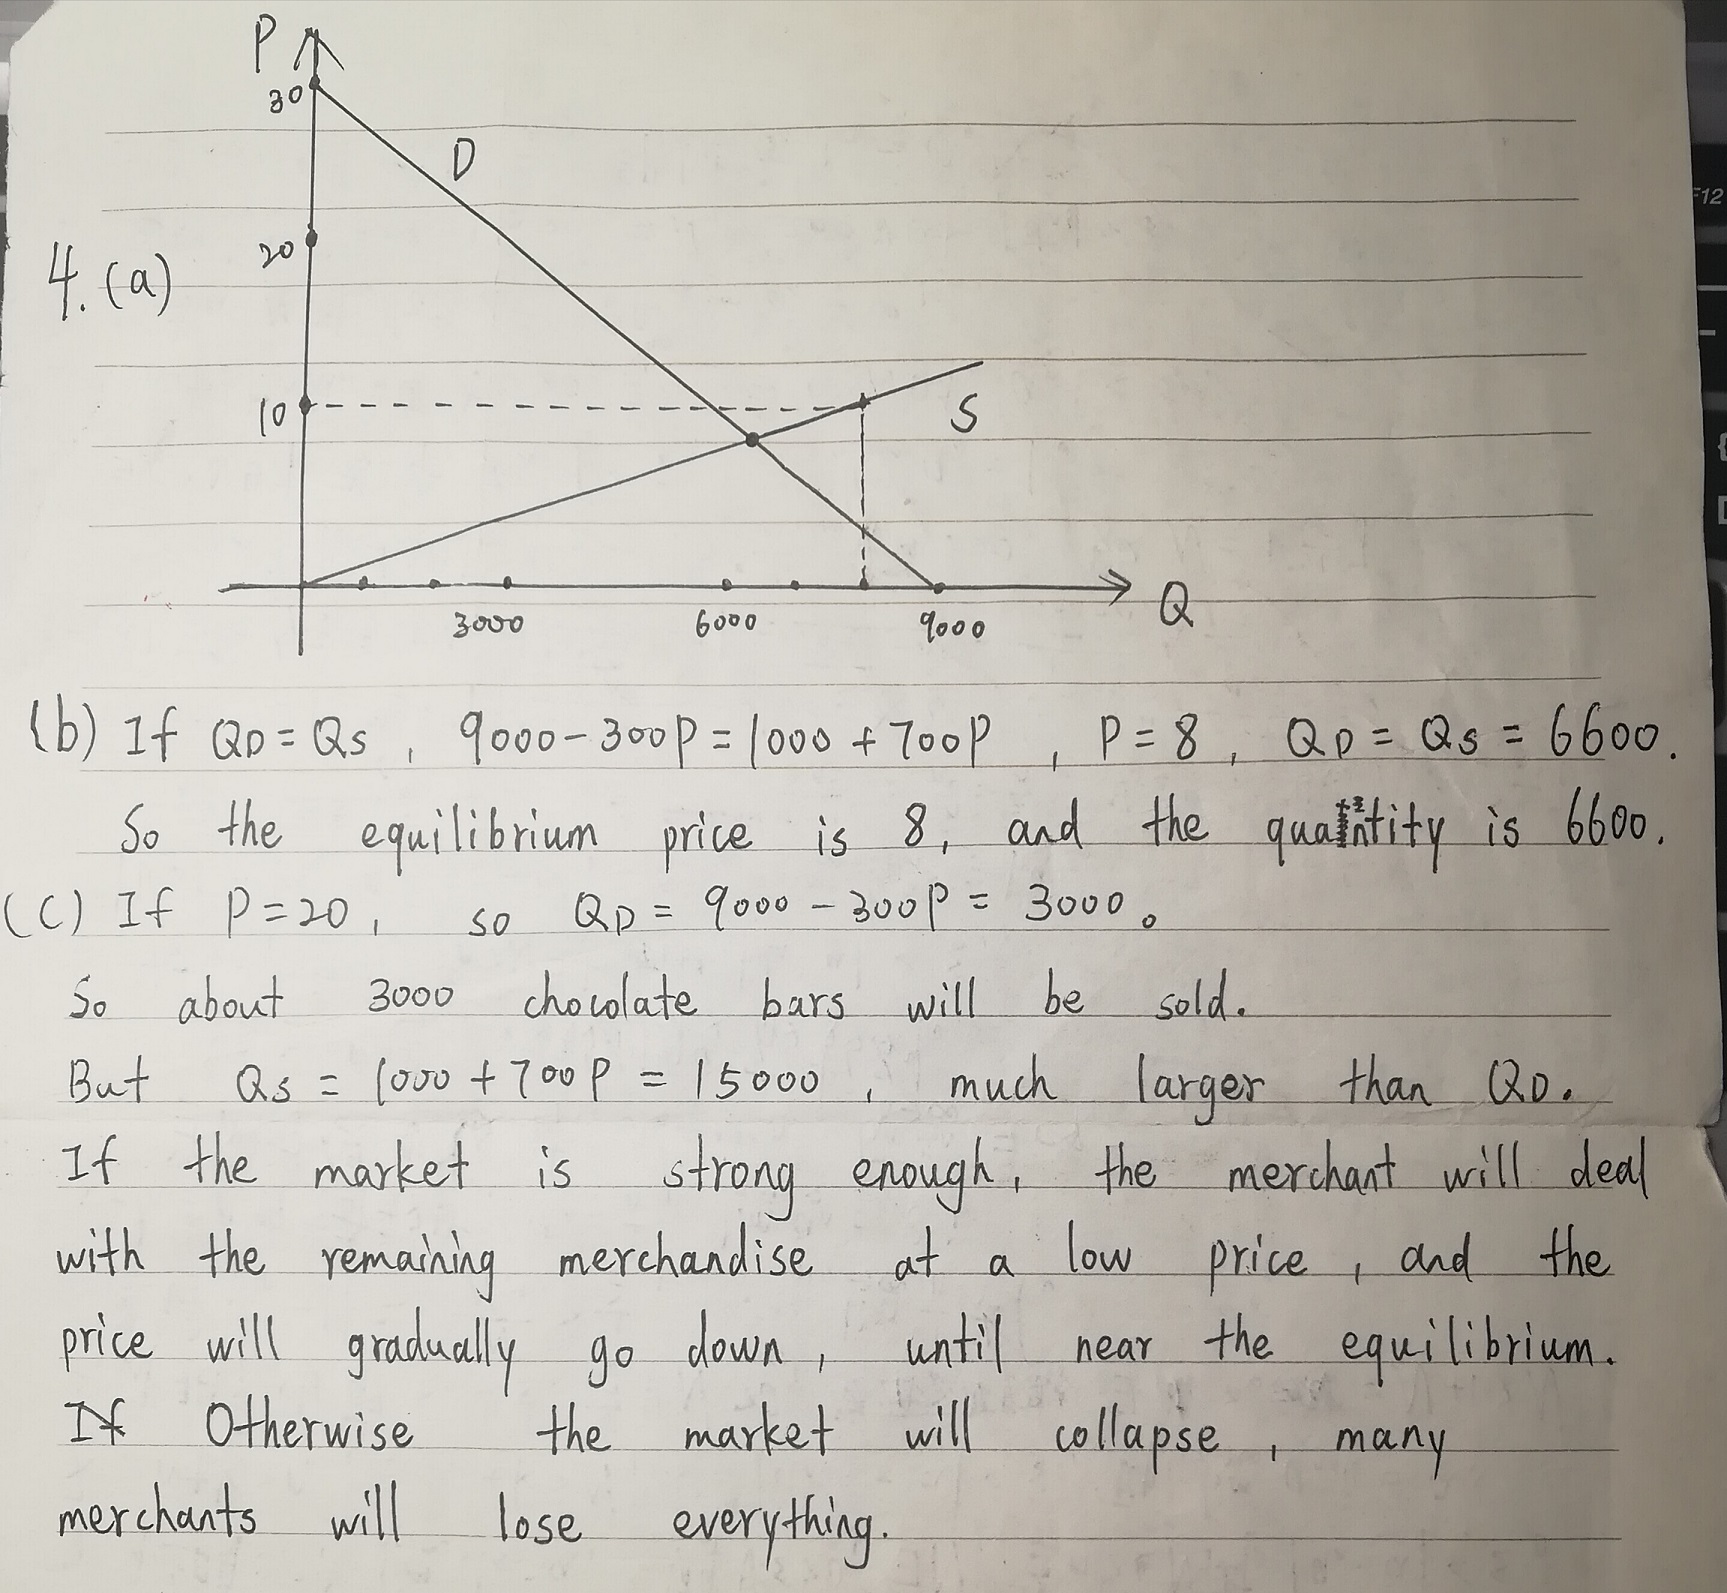 P
30
D
20
4. (a)
10
S
3000 6000 9000 Q
(b) If QD = QS , 9000 - 300P = 1000 + 700P , P = 8 , QD = QS = 6600.
So the equilibrium price is 8, and the quantity is 6600.
(C) If P = 20 , so QD = 9000 - 300P = 3000。
So about 3000 chocolate bars will be sold.
But QS = 1000 + 700P = 15000 , much larger than QD.
If the market is strong enough, the merchant will deal
with the remaining merchandise at a low price , and the
price will gradually go down , until near the equilibrium.
If Otherwise the market will collapse , many
merchants will lose everything.
F12